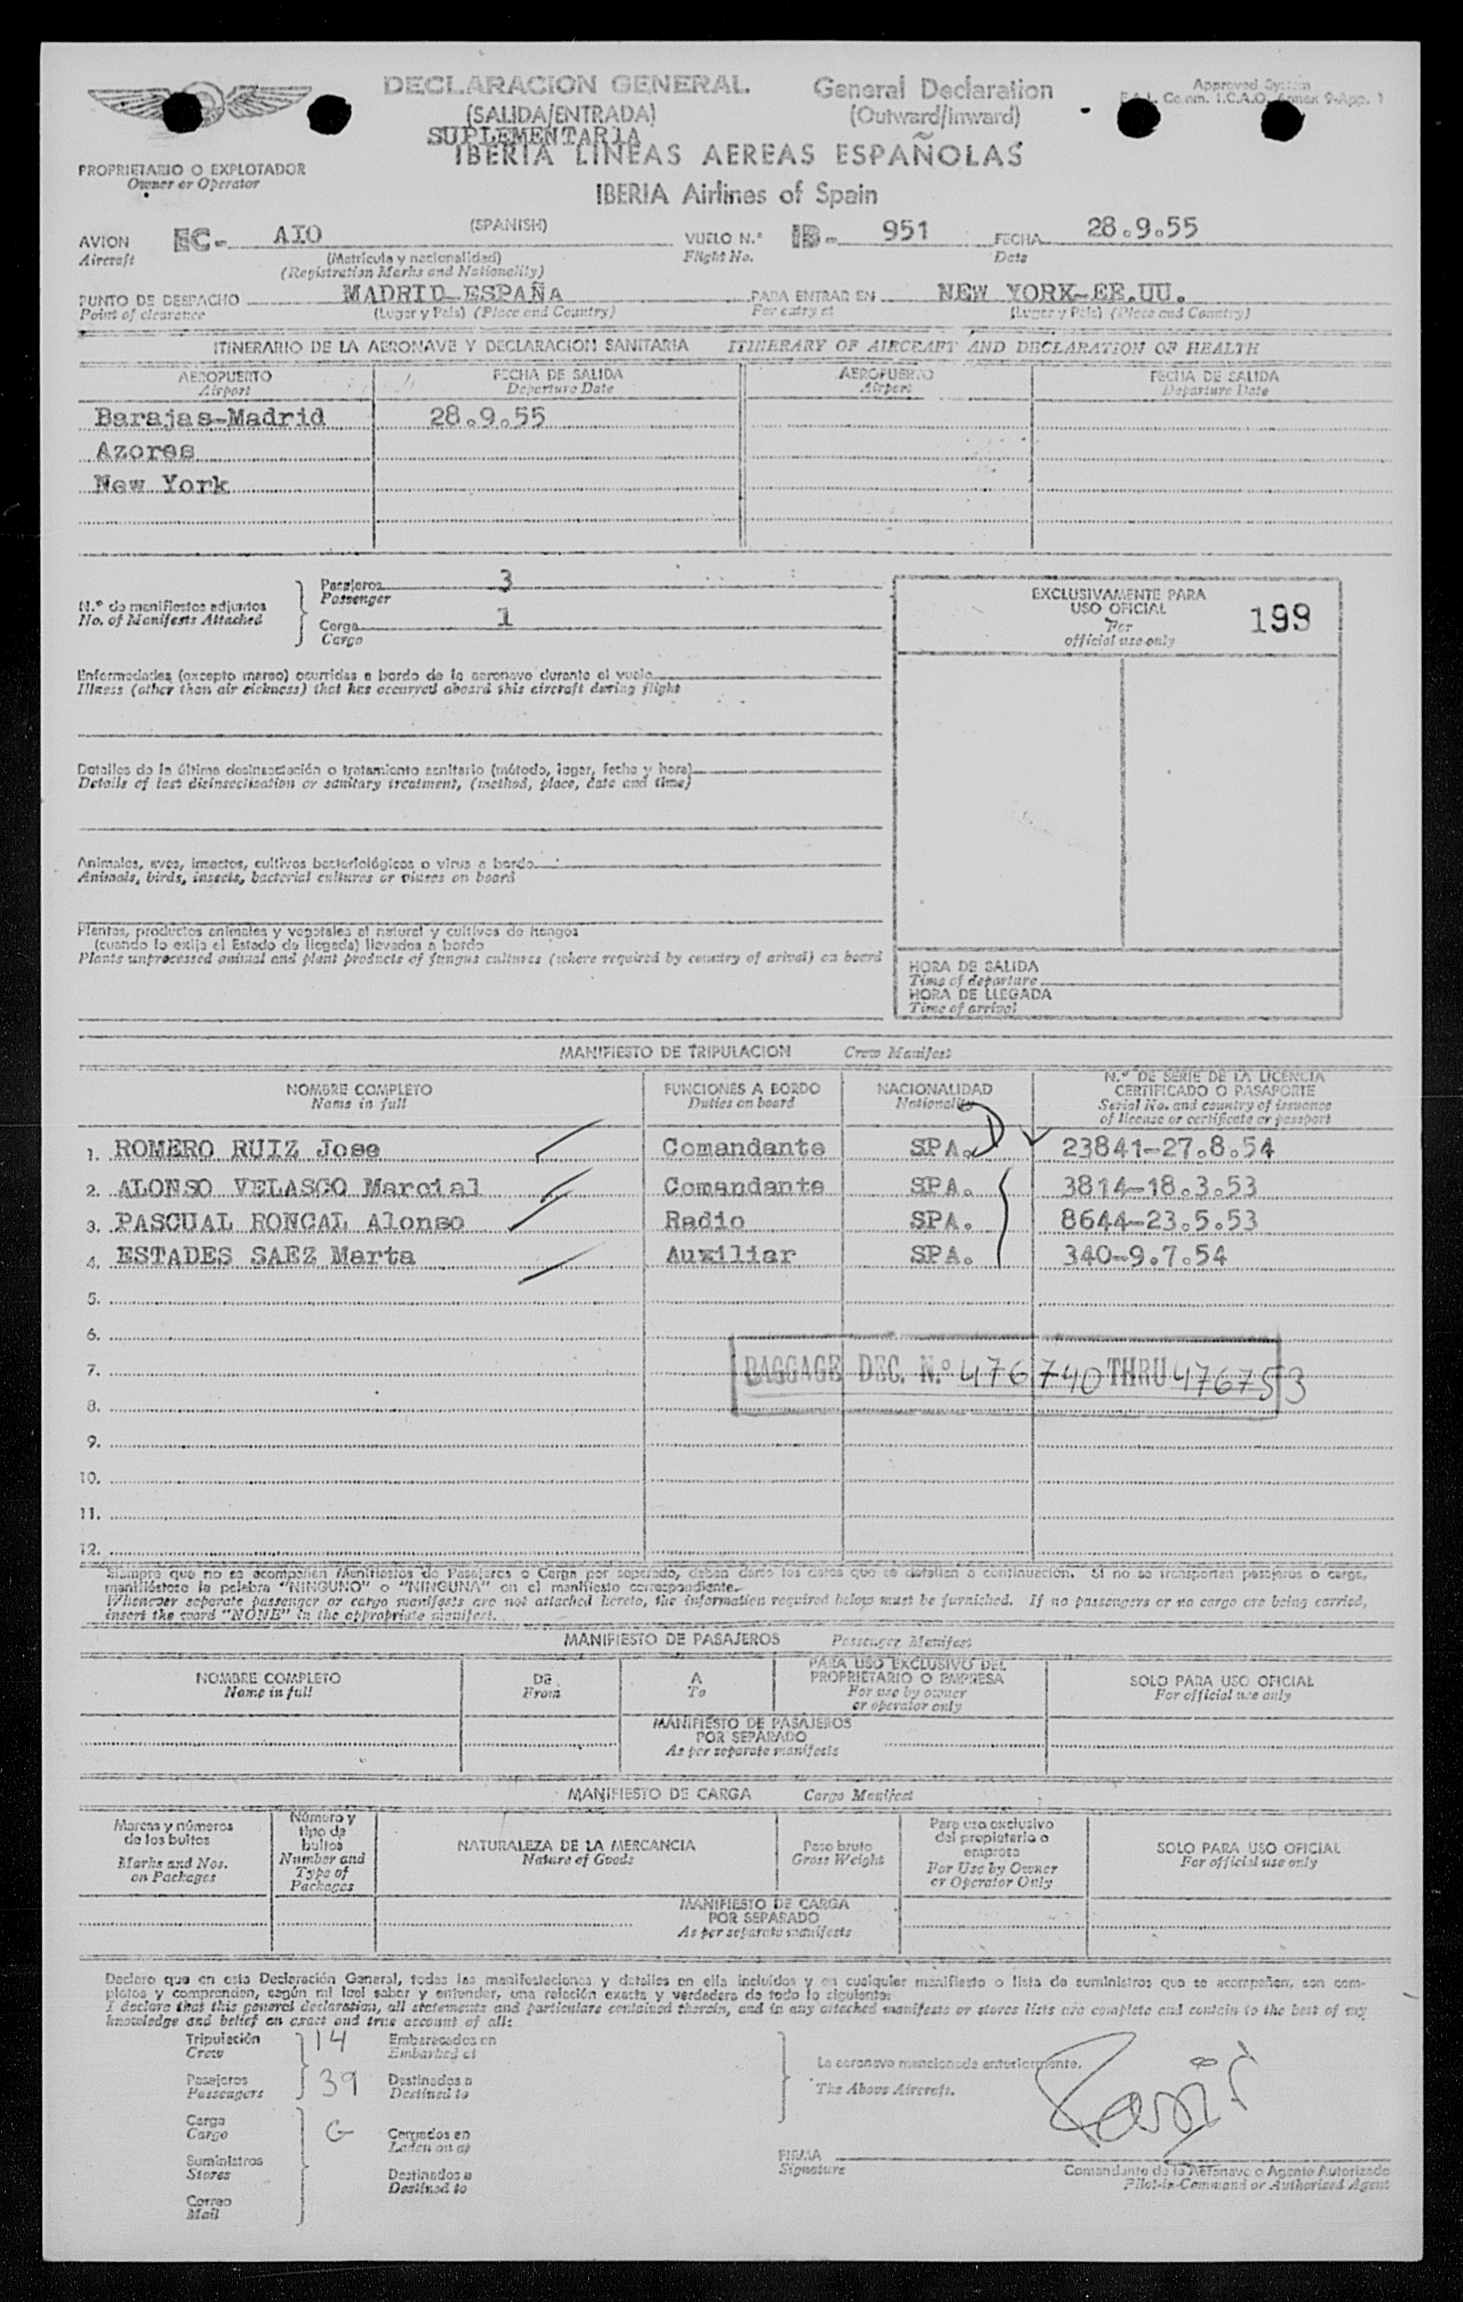 DECLARACION GENERAL
General Declaration
Approved System
(SALIDA/ENTRADA)
(Outward/Inward)
F.A.L. Comm. I.C.A.O. Annex 9-App. 1
SUPLEMENTARIA
IBERIA LINEAS AEREAS ESPAÑOLAS
PROPRIETARIO O EXPLOTADOR
Owner or Operator
IBERIA Airlines of Spain
AVION EC- AIO (SPANISH) VUELO N.° IB- 951 FECHA 28.9.55
Aircraft (Matricula y nacionalidad) Flight No. Date
(Registration Marks and Nationality)
PUNTO DE DESPACHO MADRID-ESPAÑA PARA ENTRAR EN NEW YORK-EE.UU.
Point of clearance (Lugar y País) (Place and Country) For entry at (Lugar y País) (Place and Country)
ITINERARIO DE LA AERONAVE Y DECLARACION SANITARIA ITINERARY OF AIRCRAFT AND DECLARATION OF HEALTH
AEROPUERTO FECHA DE SALIDA AEROPUERTO FECHA DE SALIDA
Airport Departure Date Airport Departure Date
Barajas-Madrid 28.9.55
Azores
New York
N.° de manifiestos adjuntos
No. of Manifests Attached
Pasajeros 3
Passenger
Carga 1
Cargo
EXCLUSIVAMENTE PARA
USO OFICIAL
For
official use only
199
Enfermedades (excepto mareo) ocurridas a bordo de la aeronave durante el vuelo
Illness (other than air sickness) that has occurred aboard this aircraft during flight
Detalles de la última desinsectación o tratamiento sanitario (método, lugar, fecha y hora)
Details of last disinsectisation or sanitary treatment, (method, place, date and time)
Animales, aves, insectos, cultivos bacteriológicos o virus a bordo
Animals, birds, insects, bacterial cultures or viuses on board
Plantas, productos animales y vegetales al natural y cultivos de hongos
(cuando lo exija el Estado de llegada) llevados a bordo
Plants unprocessed animal and plant products of fungus cultures (where required by country of arival) on board
HORA DE SALIDA
Time of departure
HORA DE LLEGADA
Time of arrival
MANIFIESTO DE TRIPULACION Crew Manifest
NOMBRE COMPLETO
Name in full
FUNCIONES A BORDO
Duties on board
NACIONALIDAD
Nationality
N.° DE SERIE DE LA LICENCIA
CERTIFICADO O PASAPORTE
Serial No. and country of issuance
of license or certificate or passport
1. ROMERO RUIZ Jose Comandante SPA. D 23841-27.8.54
2. ALONSO VELASCO Marcial Comandante SPA. 3814-18.3.53
3. PASCUAL RONCAL Alonso Radio SPA. 8644-23.5.53
4. ESTADES SAEZ Marta Auxiliar SPA. 340-9.7.54
5.
6.
7. BAGGAGE DEC. N.° 476740 THRU 476753
8.
9.
10.
11.
12.
Siempre que no se acompañen Manifiestos de Pasajeros o Carga por separado, deben darse los datos que se detallan a continuación. Si no se transporten pasajeros o carga,
manifiéstese la palabra "NINGUNO" o "NINGUNA" en el manifiesto correspondiente.
Whenever separate passenger or cargo manifests are not attached hereto, the information required below must be furnished. If no passengers or no cargo are being carried,
insert the word "NONE" in the appropriate manifest.
MANIFIESTO DE PASAJEROS Passenger Manifest
NOMBRE COMPLETO
Name in full
DE
From
A
To
PARA USO EXCLUSIVO DEL
PROPRIETARIO O EMPRESA
For use by owner
or operator only
SOLO PARA USO OFICIAL
For official use only
MANIFIESTO DE PASAJEROS
POR SEPARADO
As per separate manifests
MANIFIESTO DE CARGA Cargo Manifest
Marcas y números
de los bultos
Marks and Nos.
on Packages
Número y
tipo de
bultos
Number and
Type of
Packages
NATURALEZA DE LA MERCANCIA
Nature of Goods
Peso bruto
Gross Weight
Para uso exclusivo
del propietario o
empresa
For Use by Owner
or Operator Only
SOLO PARA USO OFICIAL
For official use only
MANIFIESTO DE CARGA
POR SEPARADO
As per separate manifests
Declaro que en esta Declaración General, todas las manifestaciones y detalles en ella incluídos y en cualquier manifiesto o lista de suministros que se acompañen, son com-
pletos y comprenden, según mi leal saber y entender, una relación exacta y verdadera de todo lo siguiente:
I declare that this general declaration, all statements and particulars contained therein, and in any attached manifests or stores lists are complete and contain to the best of my
knowledge and belief an exact and true account of all:
Tripulación 14 Embarcados en
Crew Embarked at
Pasajeros 39 Destinados a
Passengers Destined to
Carga G Cargados en
Cargo Laden on at
Suministros Destinados a
Stores Destined to
Correo
Mail
La aeronave mencionada anteriormente.
The Above Aircraft.
FIRMA
Signature
Comandante de la Aeronave o Agente Autorizado
Pilot-in-Command or Authorised Agent